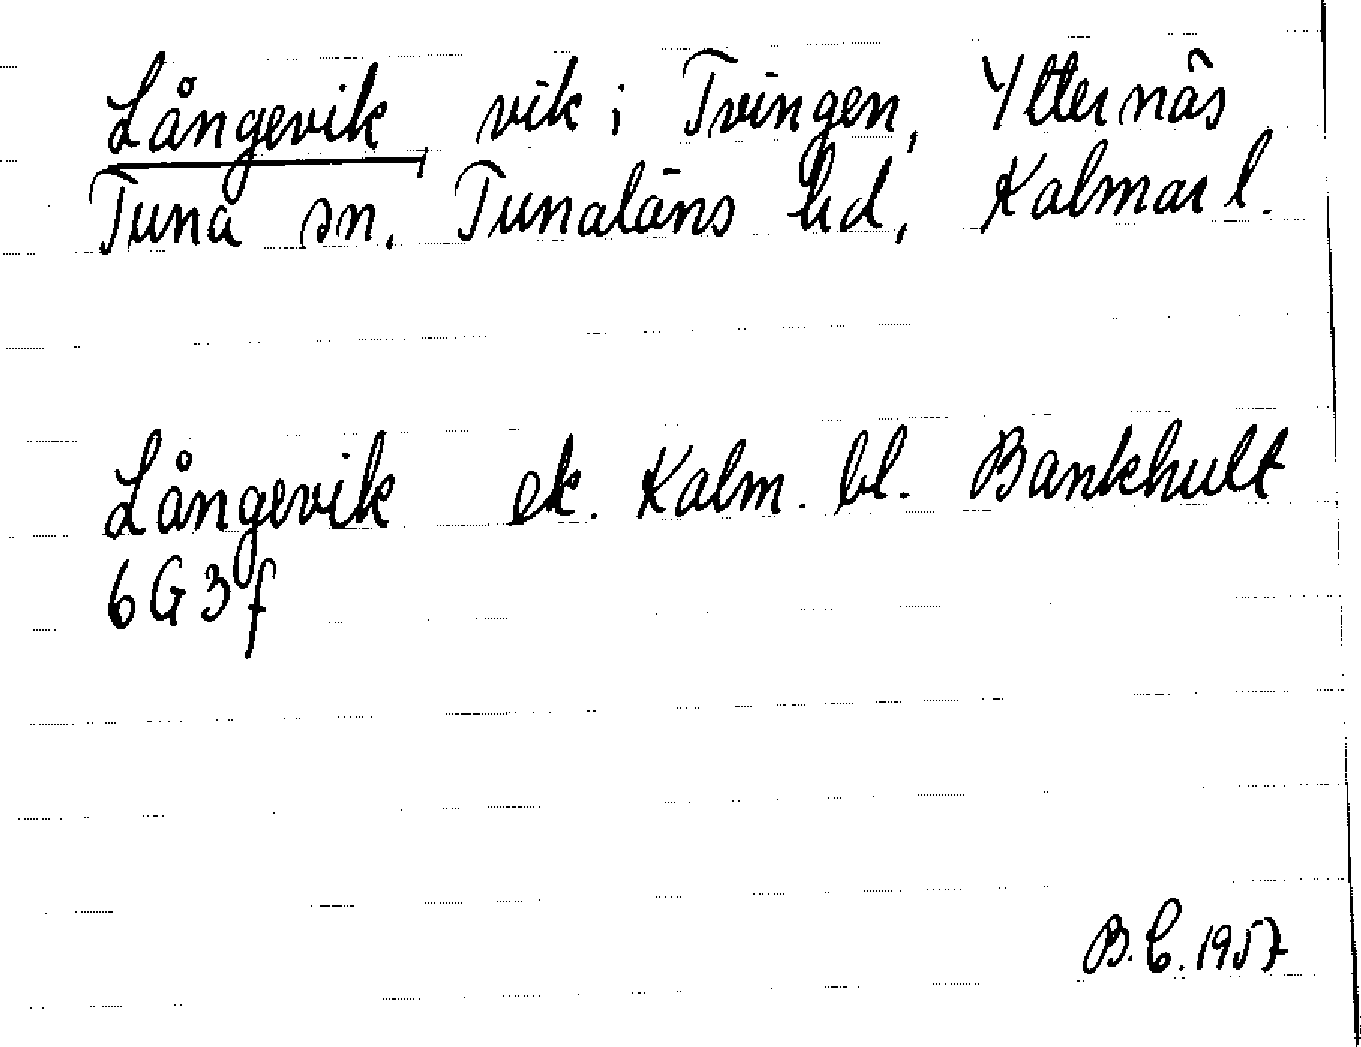 Långevik, vik i Tvingen, Ytternäs
Tuna sn. Tunaläns hd, Kalmar l.
Långevik ek. Kalm. bl. Bankhult
6G3f
B.C. 1957